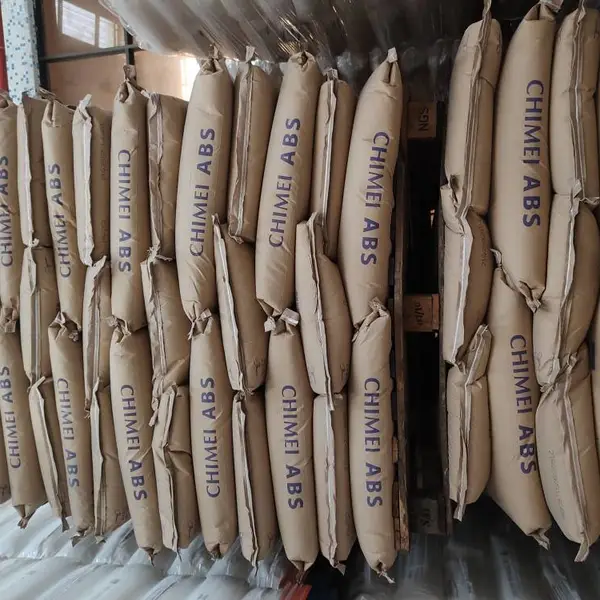 CHIMEI ABS
CHIMEI ABS
CHIMEI ABS
CHIMEI ABS
CHIMEI ABS
CHIMEI ABS
CHIMEI ABS
CHIMEI ABS
CHIMEI ABS
CHIMEI ABS
CHIMEI ABS
CHIMEI ABS
CHIMEI ABS
CHIMEI ABS